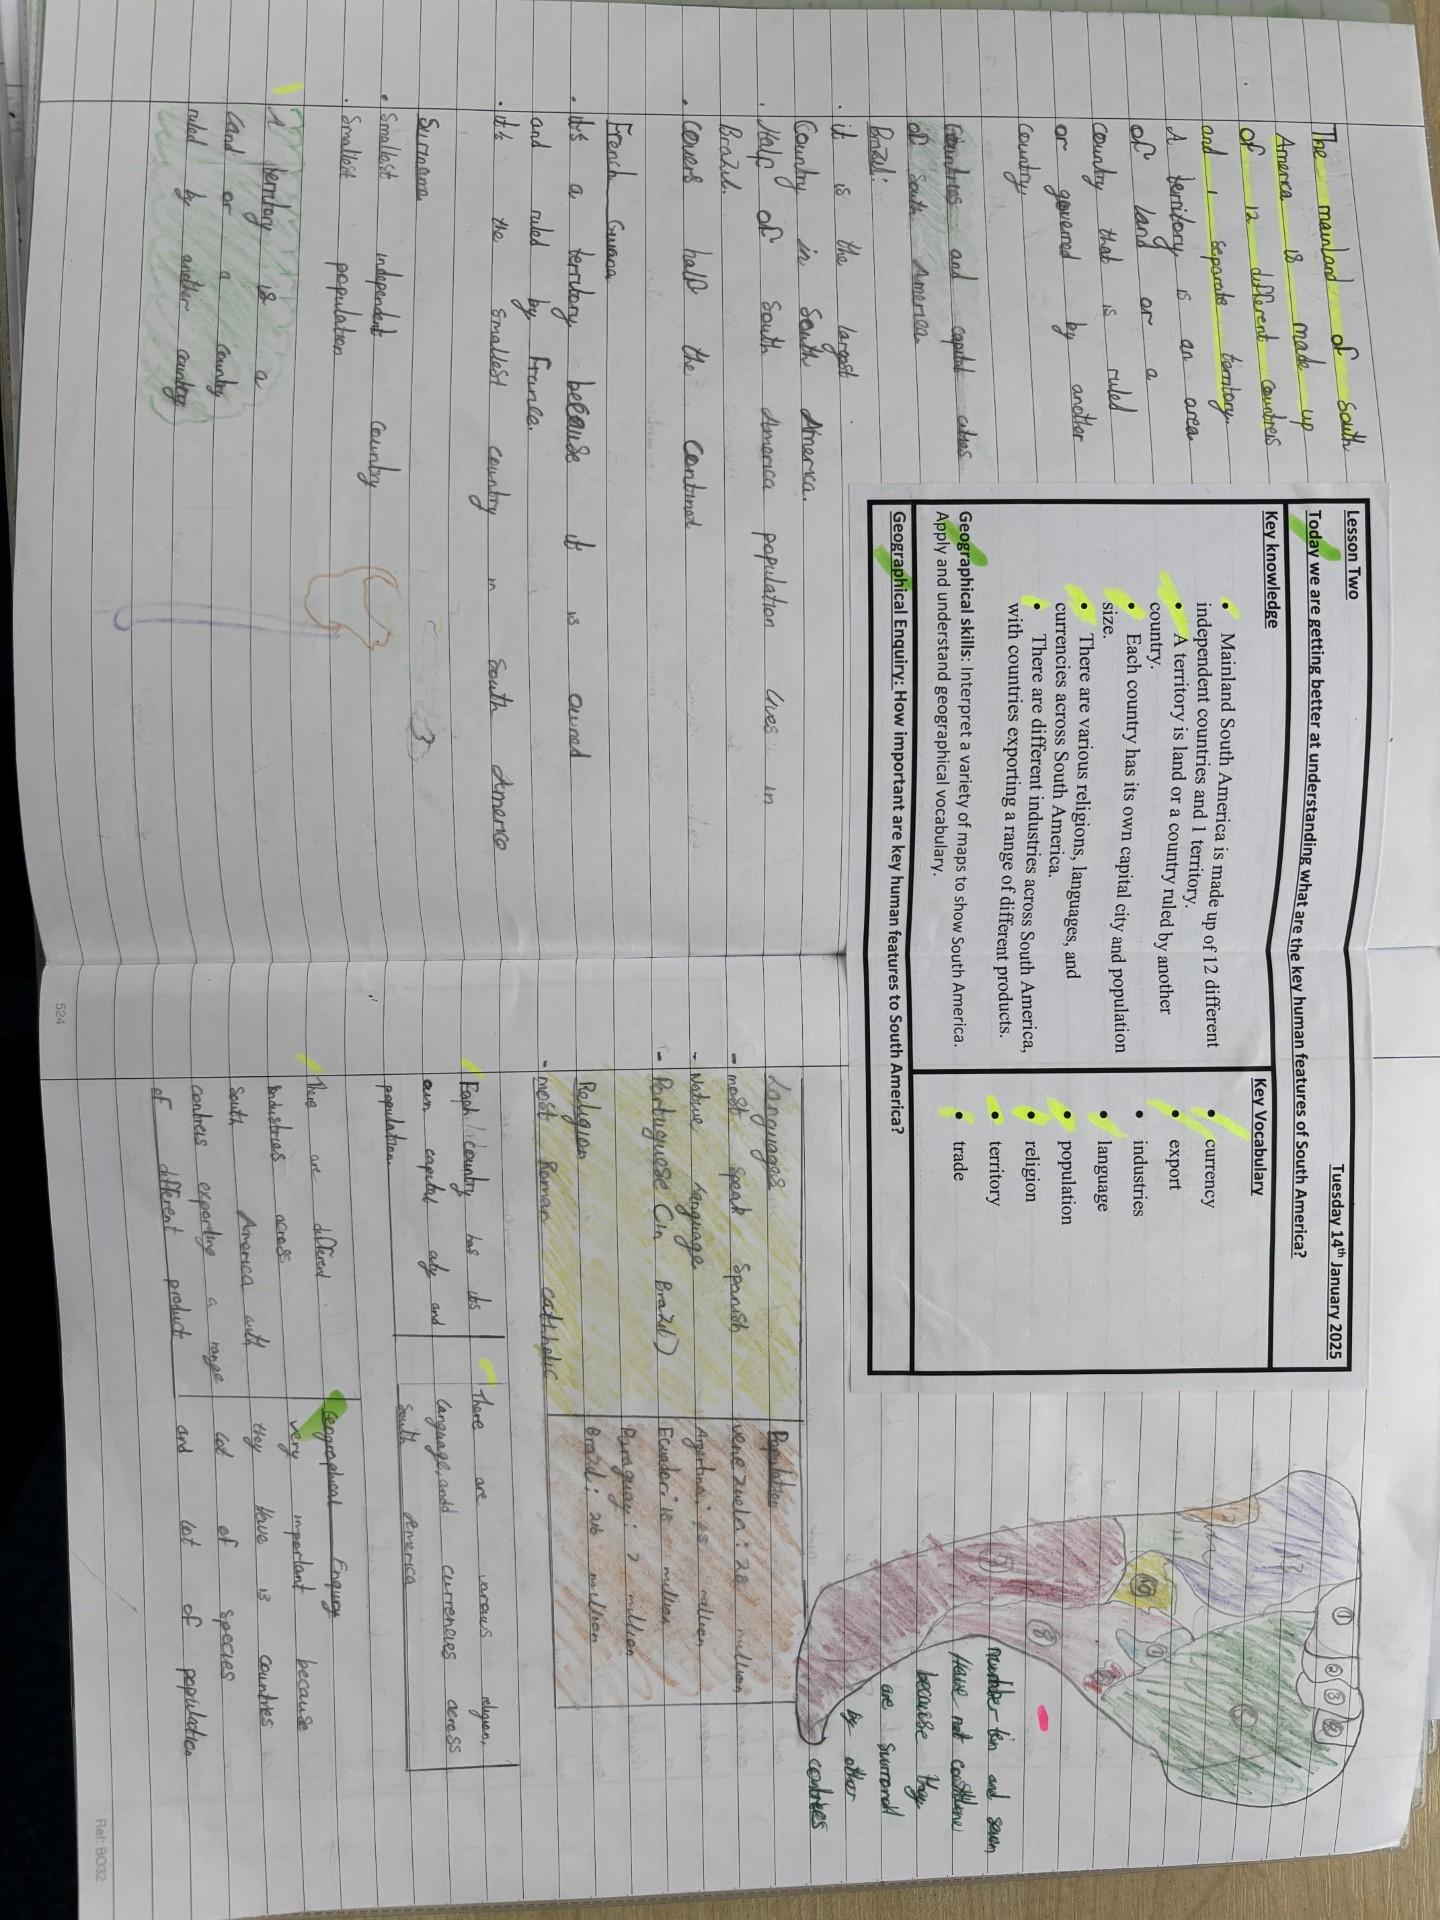 The mainland of South
America is made up
of 12 different countreis
and 1 separate territory.
A territory is an area
of land or a
country that is ruled
or governed by another
country.
Countries and capital cities
of South America.
Brazil:
· it is the largest
Country in South America.
· Half of South America population lives in
Brazil.
· Covers half the continent
French Guiana
· it's a territory because it is owned
and ruled by France.
· it's the smallest country in South America
Suriname
· Smallest independent country
· Smallest population
A territory is a
land or a country
ruled by another country
Lesson Two
Tuesday 14th January 2025
Today we are getting better at understanding what are the key human features of South America?
Key knowledge
• Mainland South America is made up of 12 different
independent countries and 1 territory.
• A territory is land or a country ruled by another
country.
• Each country has its own capital city and population
size.
• There are various religions, languages, and
currencies across South America.
• There are different industries across South America,
with countries exporting a range of different products.
Key Vocabulary
• currency
• export
• industries
• language
• population
• religion
• territory
• trade
Geographical skills: Interpret a variety of maps to show South America.
Apply and understand geographical vocabulary.
Geographical Enquiry: How important are key human features to South America?
1
2
3
8
10
number ten and seven
Have not coastline
because they
are
by other
contries
Languages
- most speak Spanish
- Native language
- Portuguese (in Brazil)
Religion
- most Roman catholic
Population
venezuela: 28 million
Argentina: million
Ecuador: 18 million
Paraguay: 7 million
Brazil: 216 million
Each country has its
own capital city and
population.
There are various religion,
language, and currencies across
South America
There are different
industries across
South America with
contreis exporting a range
of different product
Geographical Enquiry
very important because
they Have 13 countries
lot of species
and lot of population
524
Ref: BO32